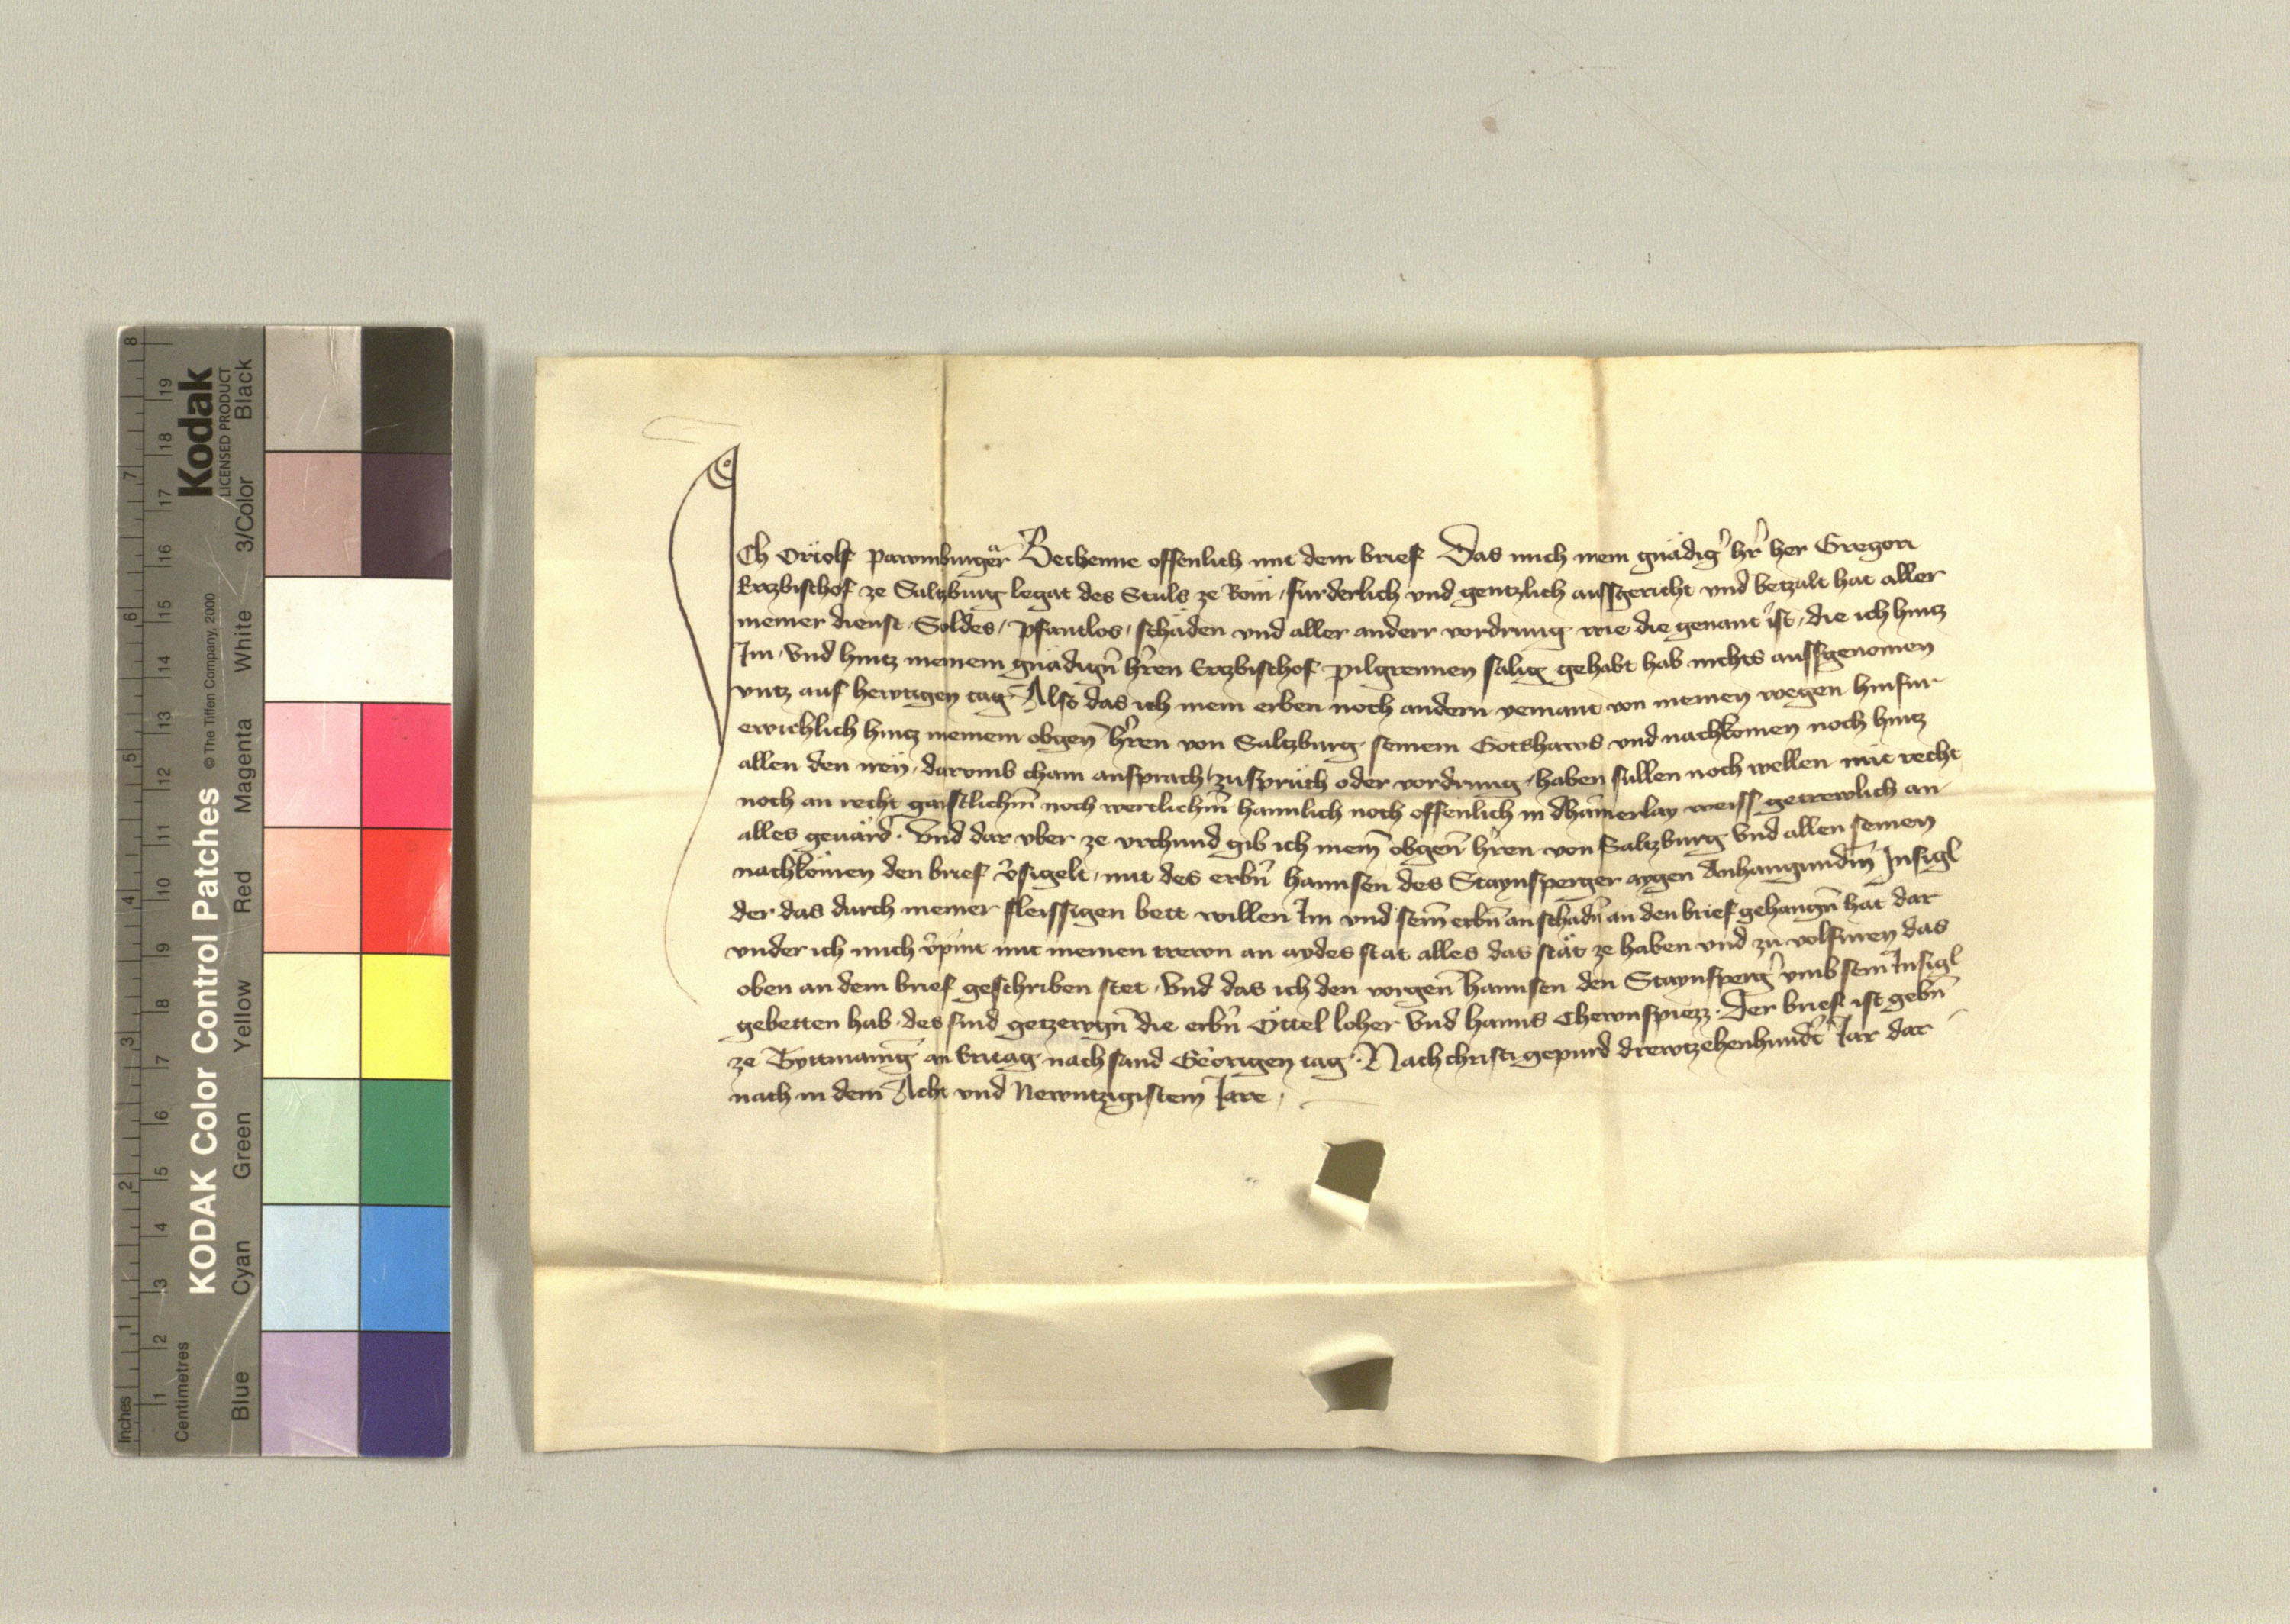 Ich Ortolf pawmburger Bechenne offenlich mit dem brief Das mich mein gnädig' h'r her Gregori
Ertzbischof ze Saltzburg legat des Stuls ze Rom / furderlich vnd gentzlich aussgericht vnd betzalt hat aller
meiner dienst / Soldes / pfantlos / schäden vnd aller anderr vordrung wie die genant ist / die ich hintz
Im / Vnd hintz meinem gnädign̄ h'ren Ertzbischof pilgreimen sälig gehabt hab nichts aussgenomen
vntz auf hewtigen tag. Also das ich mein erben noch andern yemant von meinen wegen hinfur
ewichlich hintz meinem obgen̄ h'ren von Saltzburg seinem Gotshaws vnd nachkomen noch hintz
allen den irn̄ / darvmb chain ansprach / zuspruch oder vordrung / haben sullen noch wellen mit recht
noch an recht gaistlichm̄ noch wertlichm̄ haimlich noch offenlich in dhainerlay weiss getrewlich an
alles geuärd. Vnd dar vber ze vrchund gib ich mein̄ obgen̄ h'ren von Saltzburg Vnd allen seinen
nachkomen den brief v'sigelt / mit des erbn̄ hannsen des Staynsperger aygen Anhangundm̄ Insigl
der das durch meiner fleissigen bett willen Im vnd sein̄ erbn̄ an schadn̄ an den brief gehangn̄ hat dar
vnder ich mich v'pint mit meinen trewn an aydes stat alles das stät ze haben vnd zu volfuren das
oben an dem brief geschriben stet. Vnd das ich den vorgen̄ hannsen den Staynsperg' vmb sein Insigl
gebetten hab / des sind getzewgn̄ die erbn̄ Ottel loher Vnd hanns Chewnspiezz. Der brief ist gebn̄
ze Tyttmaning an Eritag nach sand Georigen tag. Nach christi gepurd drewtzehenhundt' Jar dar
nach in dem Acht vnd Newntzigistem Jare.
Kodak
LICENSED PRODUCT
KODAK Color Control Patches © The Tiffen Company, 2000
Blue Cyan Green Yellow Red Magenta White 3/Color Black
Inches 1 2 3 4 5 6 7 8
Centimetres 1 2 3 4 5 6 7 8 9 10 11 12 13 14 15 16 17 18 19